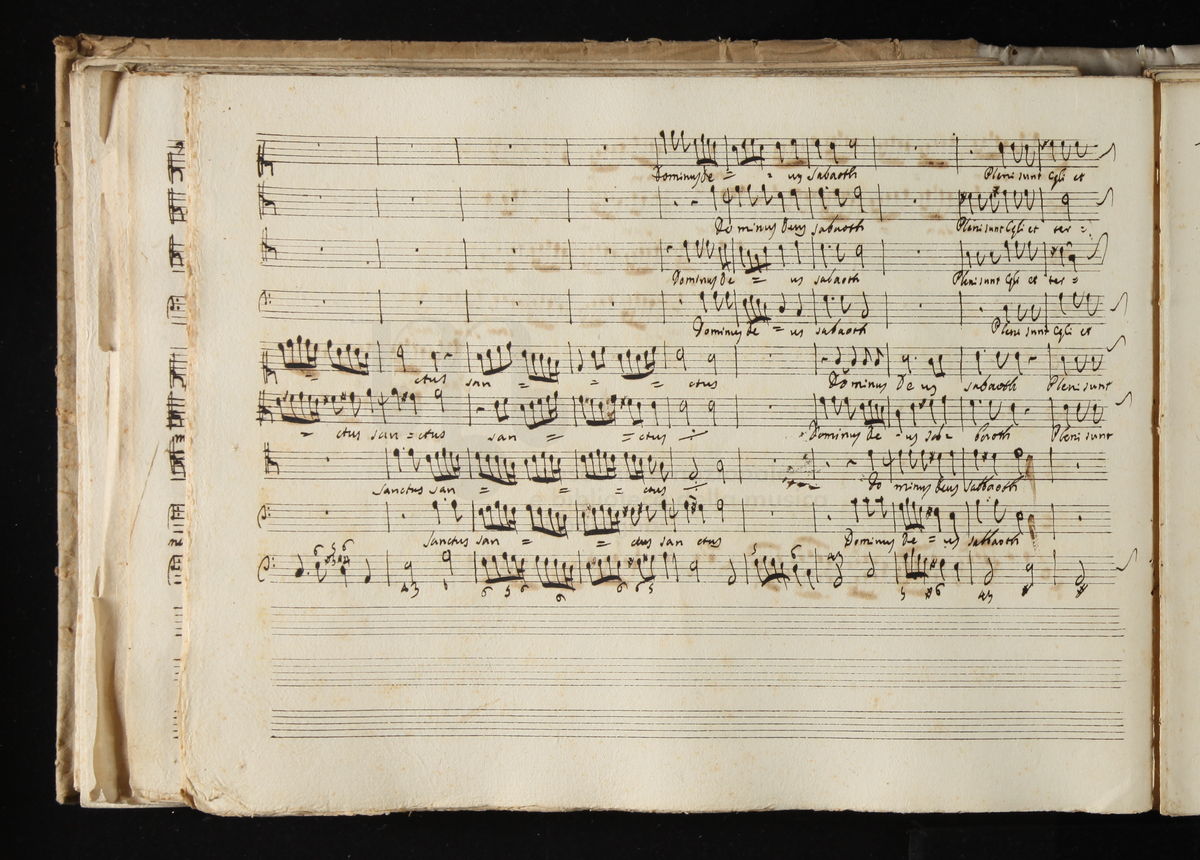 Dominus De = = us Sabaoth Pleni sunt Cęli et
Do minus Deus sabaoth Pleni sunt Cęli et ter =
Dominus De = us sabaoth Pleni sunt Cęli et ter =
Dominus De = us sabaoth Pleni sunt Cęli et
= ctus san = = = ctus Dominus De us sabaoth Pleni sunt
= ctus san = ctus san = = ctus Dominus De = us sab = baoth Pleni sunt
Sanctus san = = = ctus Do minus Deus Sabbaoth
Sanctus san = = ctus san ctus Dominus De = us sabbaoth
6 5 6
43 6 5 6 6 6 6 5 5 6 43 5 6 43
e biblioteca della musica